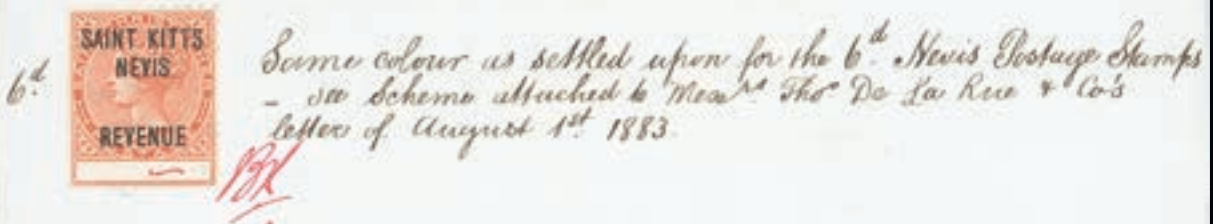 6d.
SAINT KITTS
NEVIS
REVENUE
Same colour as settled upon for the 6d. Nevis Postage Stamps
- see Scheme attached to Messrs Thos De La Rue & Co's
letter of August 1st. 1883.